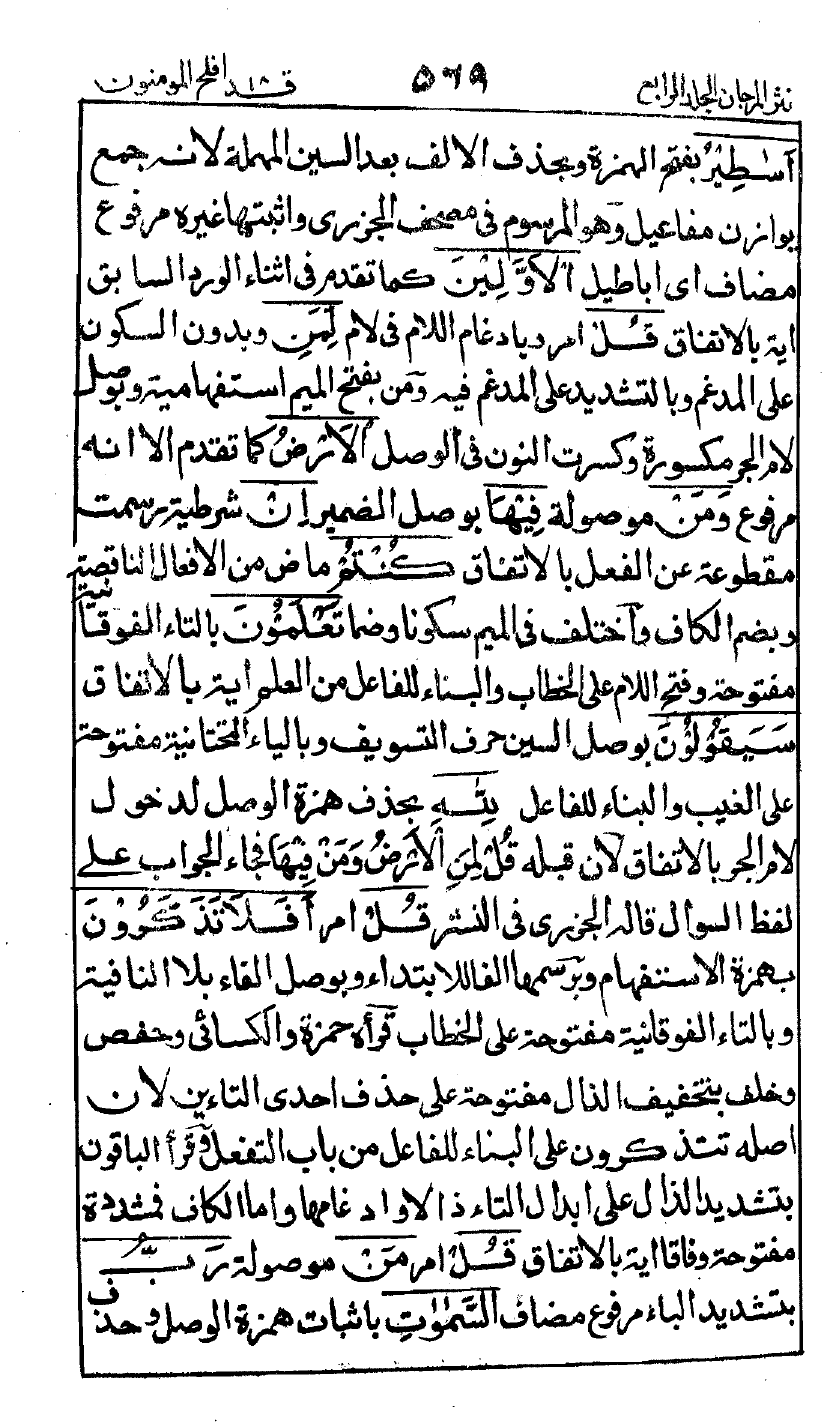 نثر المرجان الجلد الرابع
٥٦٩
قد ١٨ افلح المومنون
أَسٰطِيْرُ بفتح الهمزة وبحذف الالف بعد السين المهملة لانه جمع
يوازن مفاعيل وهو المرسوم فى مصحف الجزرى واثبتها غيره مرفوع
مضاف اى اباطيل الْأَوَّلِيْنَ كما تقدم فى اثناء الورد السابق
اية بالاتفاق قُلْ امر وبادغام اللام فى لام لِّمَنِ وبدون السكون
على المدغم وبالتشديد على المدغم فيه ومن بفتح الميم استفهامية وبوصل
لام الجر مكسورة وكسرت النون فى الوصل الْأَرْضُ كما تقدم الا انه
مرفوع وَمَنْ موصولة فِيْهَا بوصل الضمير اِنْ شرطية رسمت
مقطوعة عن الفعل بالاتفاق كُنْتُمْ ماض من الافعال الناقصة
وبضم الكاف واختلف فى الميم سكونا وضما تَعْلَمُوْنَ بالتاء الفوقانية
مفتوحة وفتح اللام على الخطاب والبناء للفاعل من العلم اية بالاتفاق
سَيَقُوْلُوْنَ بوصل السين حرف التسويف وبالياء التحتانية مفتوحة
على الغيب والبناء للفاعل لِلّٰهِ بحذف همزة الوصل لدخول
لام الجر بالاتفاق لان قبله قُلْ لِمَنِ الْأَرْضُ وَمَنْ فِيْهَا فجاء الجواب على
لفظ السوال قاله الجزرى فى النشر قُلْ امر أَفَلَا تَذَكَّرُوْنَ
بهمزة الاستفهام وبرسمها الفا للابتداء وبوصل الفاء بلا النافية
وبالتاء الفوقانية مفتوحة على الخطاب قرأه حمزة والكسائى وحفص
وخلف بتخفيف الذال مفتوحة على حذف احدى التاءين لان
اصله تتذكرون على البناء للفاعل من باب التفعل وقرأ الباقون
بتشديد الذال على ابدال التاء ذالا وادغامها واما الكاف فمشددة
مفتوحة وفاقا اية بالاتفاق قُلْ امر مَنْ موصولة رَبُّ
بتشديد الباء مرفوع مضاف السَّمٰوٰتِ باثبات همزة الوصل وحذف